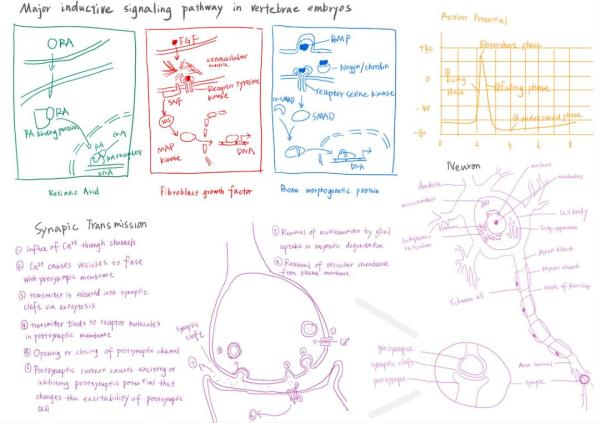 Major inductive signaling pathway in vertebrae embryos
RA
RA
RA binding protein
RA
RA receptor
DNA
Retinoic Acid
FGF
extracellular
Receptor tyrosine
kinase
MAP
kinase
DNA
Fibroblast growth factor
BMP
Noggin/chordin
receptor serine kinase
SMAD
DNA
Bone morphogenetic protein
Action Potential
+40
0
-40
-80
0
2
4
6
8
overshoot phase
Rising
phase
falling phase
undershoot phase
Neuron
nucleus
dendrite
Cell body
Golgi apparatus
Endoplasmic
reticulum
Axon hillock
Myelin sheath
Node of Ranvier
Schwann cell
Axon terminal
synapse
Synapic Transmission
① Influx of Ca²⁺ through channels
② Ca²⁺ causes vesicles to fuse
with presynapic membrane
③ transmitter is released into synaptic
cleft via exocytosis
④ transmitter binds to receptor molecules
in postsynaptic membrane
⑤ Opening or closing of postsynaptic channel
⑥ Postsynaptic current causes excitory or
inhibitory postsynaptic potential that
changes the excitability of postsynaptic
cell
⑦ Removal of neurotransmitter by glial
uptake or enzymatic degradation
⑧ Removal of vesicular membrane
from plasma membrane
synaptic
cleft
Ca²⁺
presynapse
synaptic cleft
postsynapse